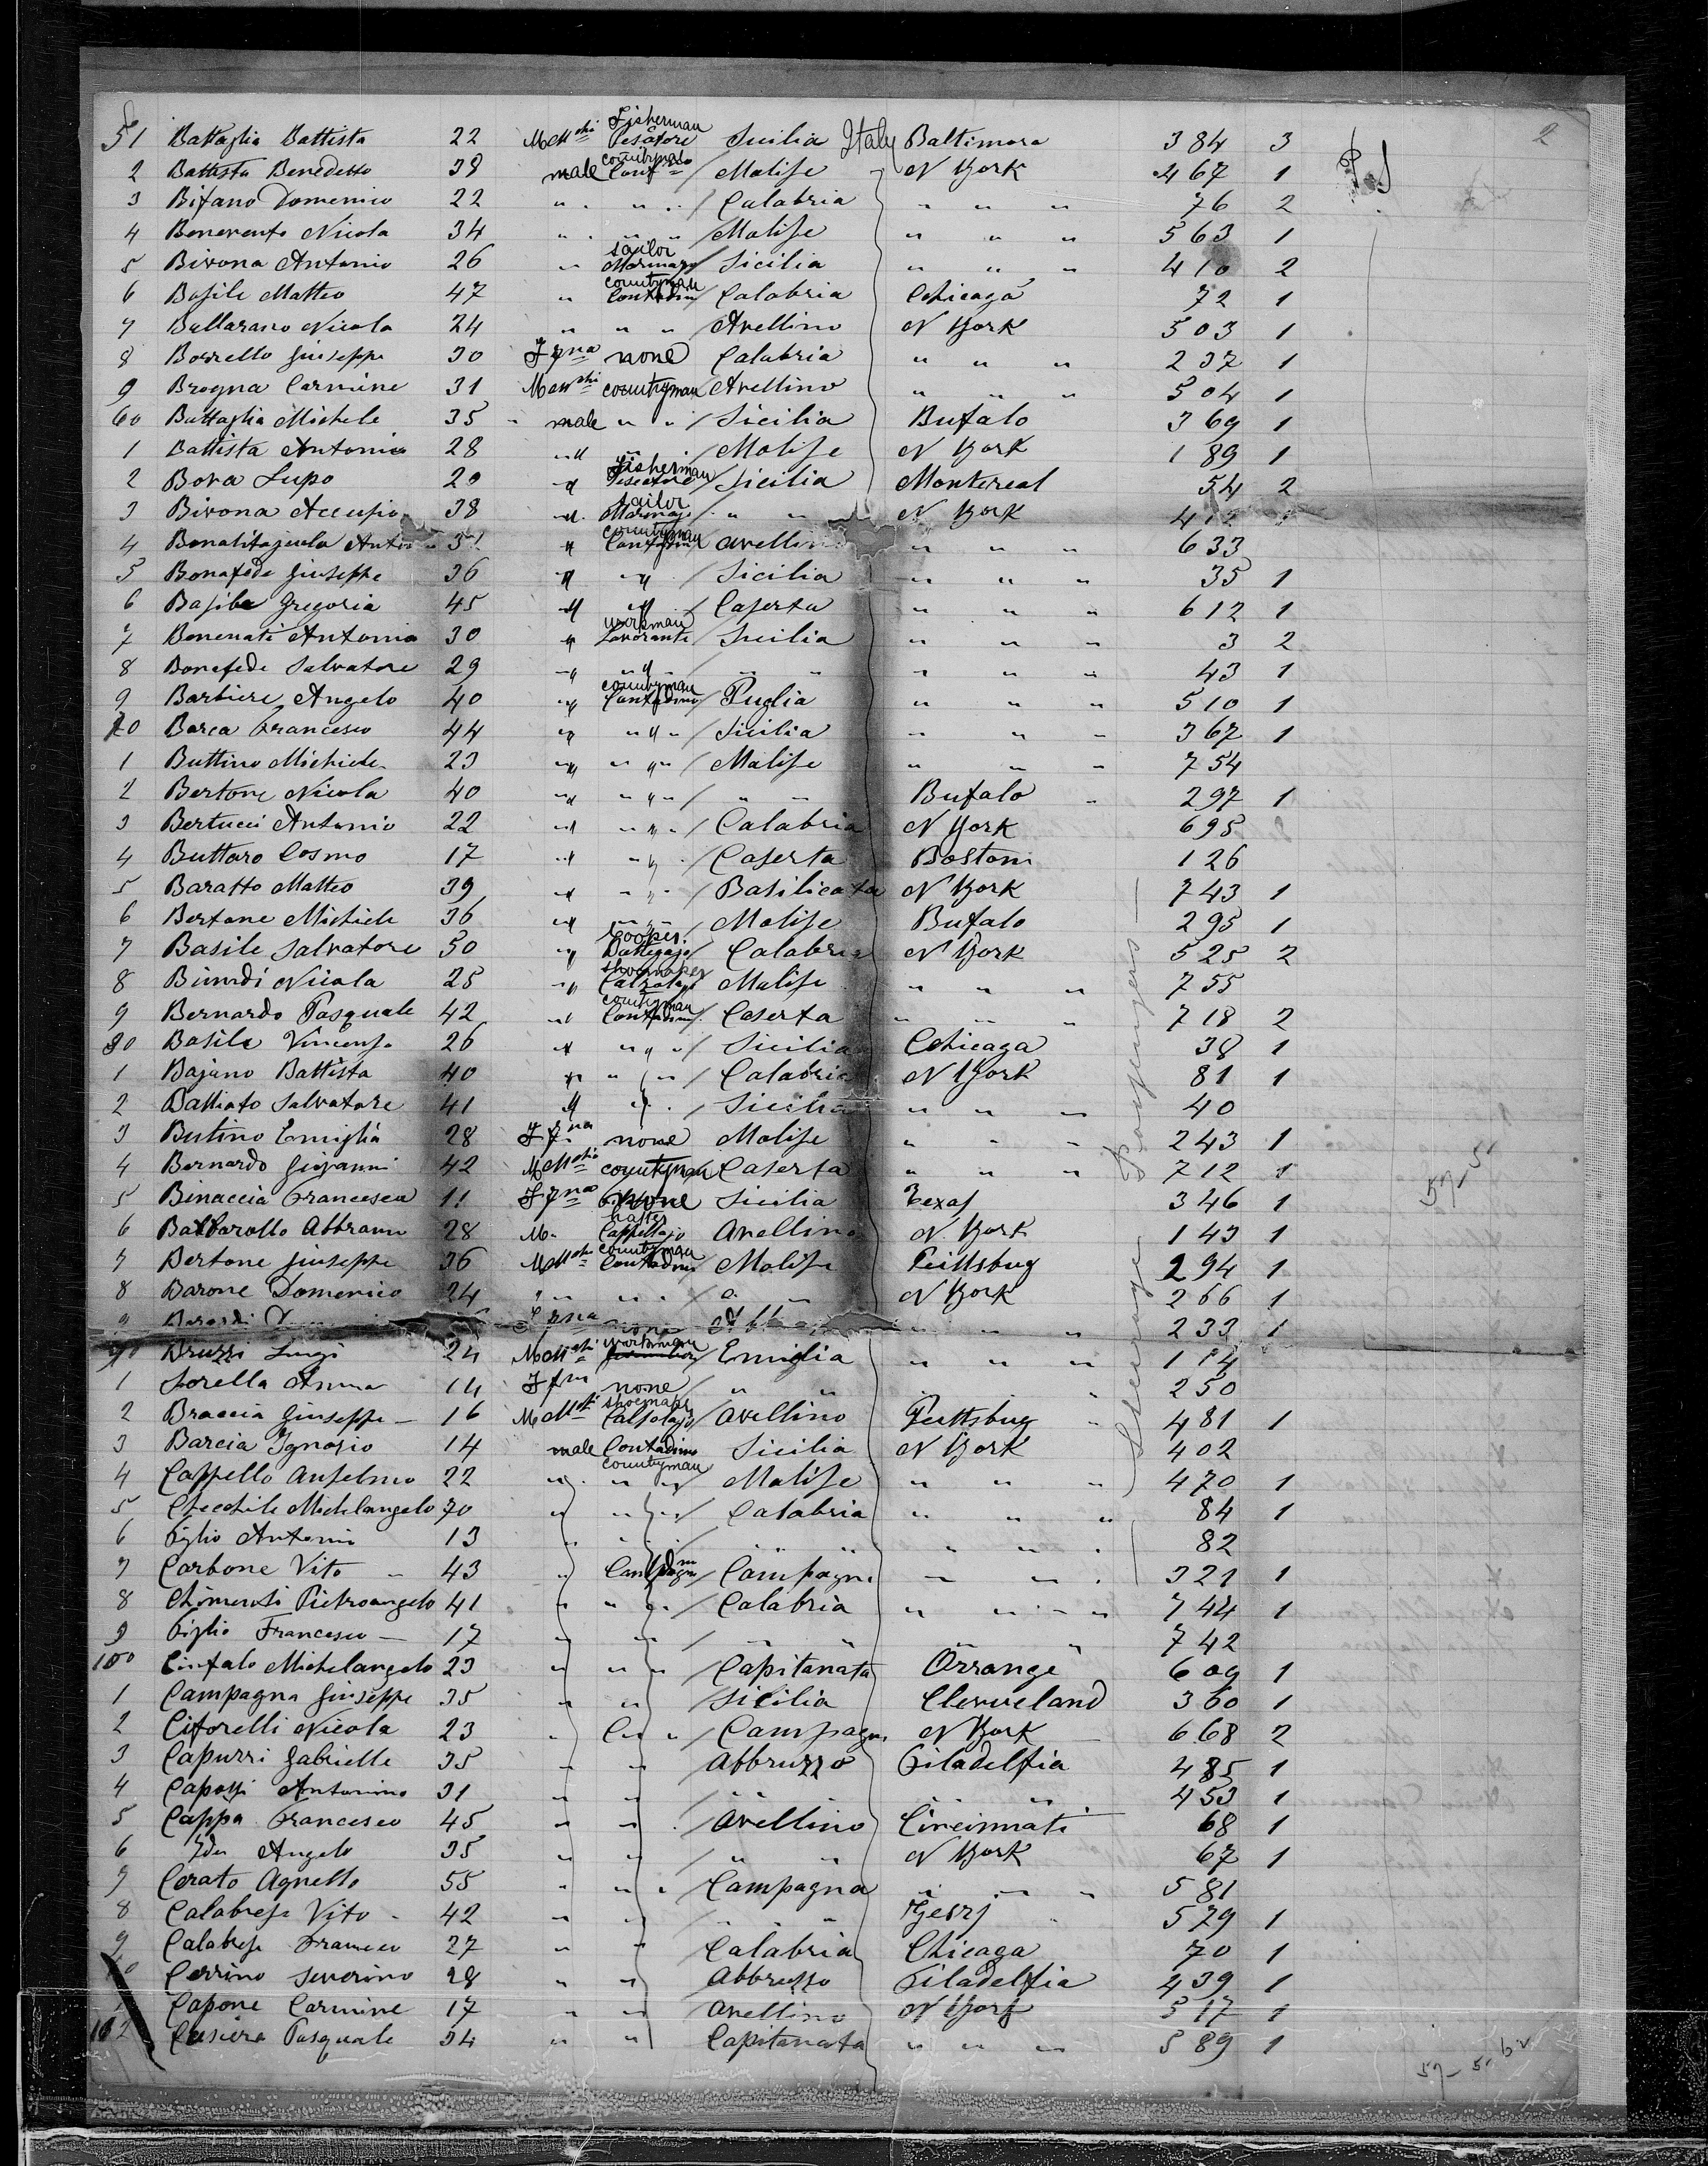 2
51 Battaglia Battista 22 Maschi Fisherman Pescatore Sicilia Italy Baltimora 384 3
2 Battista Benedetto 38 male countryman Cont Molise N York 467 1
3 Bifano Domenico 22 " " " Calabria " " " 76 2
4 Benevento Nicola 34 " " " Molise " " " 563 1
5 Bivona Antonio 26 " sailor Marinajo Sicilia " " " 410 2
6 Basile Matteo 47 " countryman Contadin Calabria Chicaga 72 1
7 Ballarano Nicola 24 " " " Avellino N York 503 1
8 Borrello Giuseppe 30 F none Calabria " " " 237 1
9 Brogna Carmine 31 Maschi countryman Avellino " " " 504 1
60 Battaglia Michele 35 male " " Sicilia Bufalo 369 1
1 Battista Antonio 28 " " Molise N York 189 1
2 Bova Lupo 20 " Fisherman Pescatore Sicilia Montereal 54 2
3 Bivona Accursio 38 " sailor Marinajo " " N York
4 Anton " countryman Contadin Avellin " " " 633
5 Bonafede Giuseppe 36 " " Sicilia " " " 35 1
6 Basile Gregoria 45 " " Caserta " " " 612 1
7 Benenati Antonio 30 " workman Lavorante Sicilia " " " 3 2
8 Bonafede Salvatore 29 " " " " " " " 43 1
9 Barbiere Angelo 40 " countryman Contadino Puglia " " " 510 1
70 Barca Francesco 44 " " " Sicilia " " " 367 1
1 Buttino Michiele 23 " " " Molise " " " 754
2 Bertone Nicola 40 " " " " " Bufalo " 297 1
3 Bertucci Antonio 22 " " " Calabria N York 695
4 Buttaro Cosmo 17 " " Caserta Boston 126
5 Baratto Matteo 39 " " Basilicata N York 743 1
6 Bertone Michiele 36 " " Molise Bufalo 295 1
7 Basile Salvatore 50 " Cooper Bottegajo Calabria N York 525 2
8 Nicola 25 " shoemaker Calzolajo Molise " " " 755
9 Bernardo Pasquale 42 " countryman Contadin Caserta " " " 718 2
80 Basile Vincenzo 26 " " " Sicilia Chicaga 38 1
1 Bajano Battista 40 " " " Calabria N York 81 1
2 Battiato Salvatore 41 " " Sicilia " " " 40
3 Butino Emiglia 28 F none Molise " " " 243 1
4 Bernardo Giovanni 42 Maschi countryman Caserta " " " 712 1
5 Binaccia Francesca 11 F none Sicilia Texas 346 1
6 Barbarollo Abbramo 28 M. hatter Cappellajo Avellino N. York 143 1
7 Bertone Giuseppe 36 Maschi countryman Contadino Molise Peittsbug 294 1
8 Barone Domenico 24 " " " " " N York 266 1
9 none " " " 233 1
90 Bruzzi Luigi 24 Maschi workman Emiglia " " "
1 Sorella Anna 14 F none " " 250
2 Braccia Giuseppe 16 Maschi shoemaker Calsolajo Avellino Peittsbug " 481 1
3 Barcia Ignazio 14 male Contadino Sicilia N York 402
4 Cappello Anselmo 22 " countryman " " Molise " " " 470 1
5 Michelangelo 70 " " " Calabria " " " 84 1
6 Figlio Antonio 13 " " " " " " " " 82
7 Carbone Vito 43 " Campagna " " " 321 1
8 Chimenti Pietroangelo 41 " " " Calabria " " " 744 1
9 Figlio Francesco 17 " " " " " " 742
100 Michelangelo 23 " " " Capitanata Orrange 609 1
1 Campagna Giuseppe 35 " " Sicilia Clerveland 360 1
2 Citorelli Nicola 23 " " Campagna N York 668 2
3 Capuzzi Gabrielle 35 " " Abbruzzo Filadelfia 485 1
4 Antonino 31 " " " " " " 453 1
5 Cappa Francesco 45 " " Avellino Cincinnati 68 1
6 Idem Angelo 35 " " " " N York 67 1
7 Cerato Agnello 55 " " " Campagna " " " 581
8 Calabrese Vito 42 " " " " Jersj " 579 1
9 Calabrese Francesco 27 " " Calabria Chicaga 70 1
Cerrino Severino 28 " " Abbruzzo Filadelfia 439 1
Capone Carmine 17 " " Avellino N York 517 1
Pasquale 34 " " Capitanata " " " 589 1
Steerage Passengers